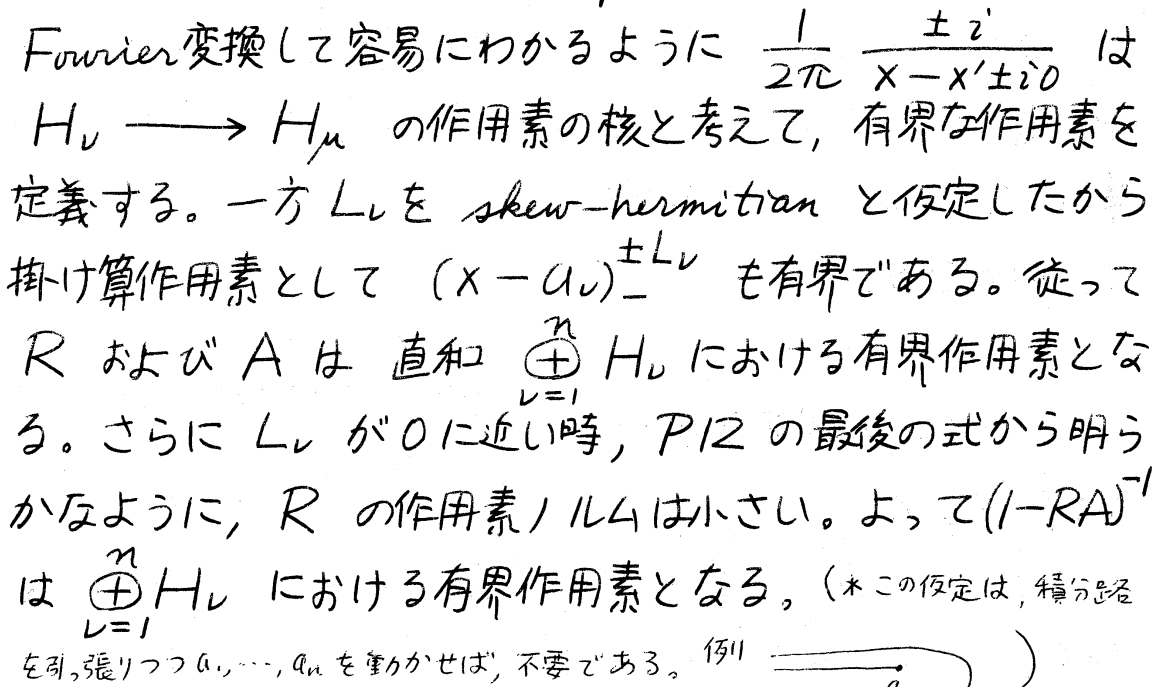 Fourier変換して容易にわかるように 1/2π ±i/(x−x′±i0) は
H_ν ⟶ H_μ の作用素の核と考えて, 有界な作用素を
定義する。一方 L_ν を skew-hermitian と仮定したから
掛け算作用素として (x−a_ν)_−^{±L_ν} も有界である。従って
R および A は 直和 ⊕_{ν=1}^{n} H_ν における有界作用素とな
る。さらに L_ν が0に近い時, P12 の最後の式から明ら
かなように, R の作用素ノルムは小さい。よって(1−RA)^{−1}
は ⊕_{ν=1}^{n} H_ν における有界作用素となる。(* この仮定は, 積分路
を引っ張りつつ a_1, ⋯, a_n を動かせば, 不要である。例 )
a